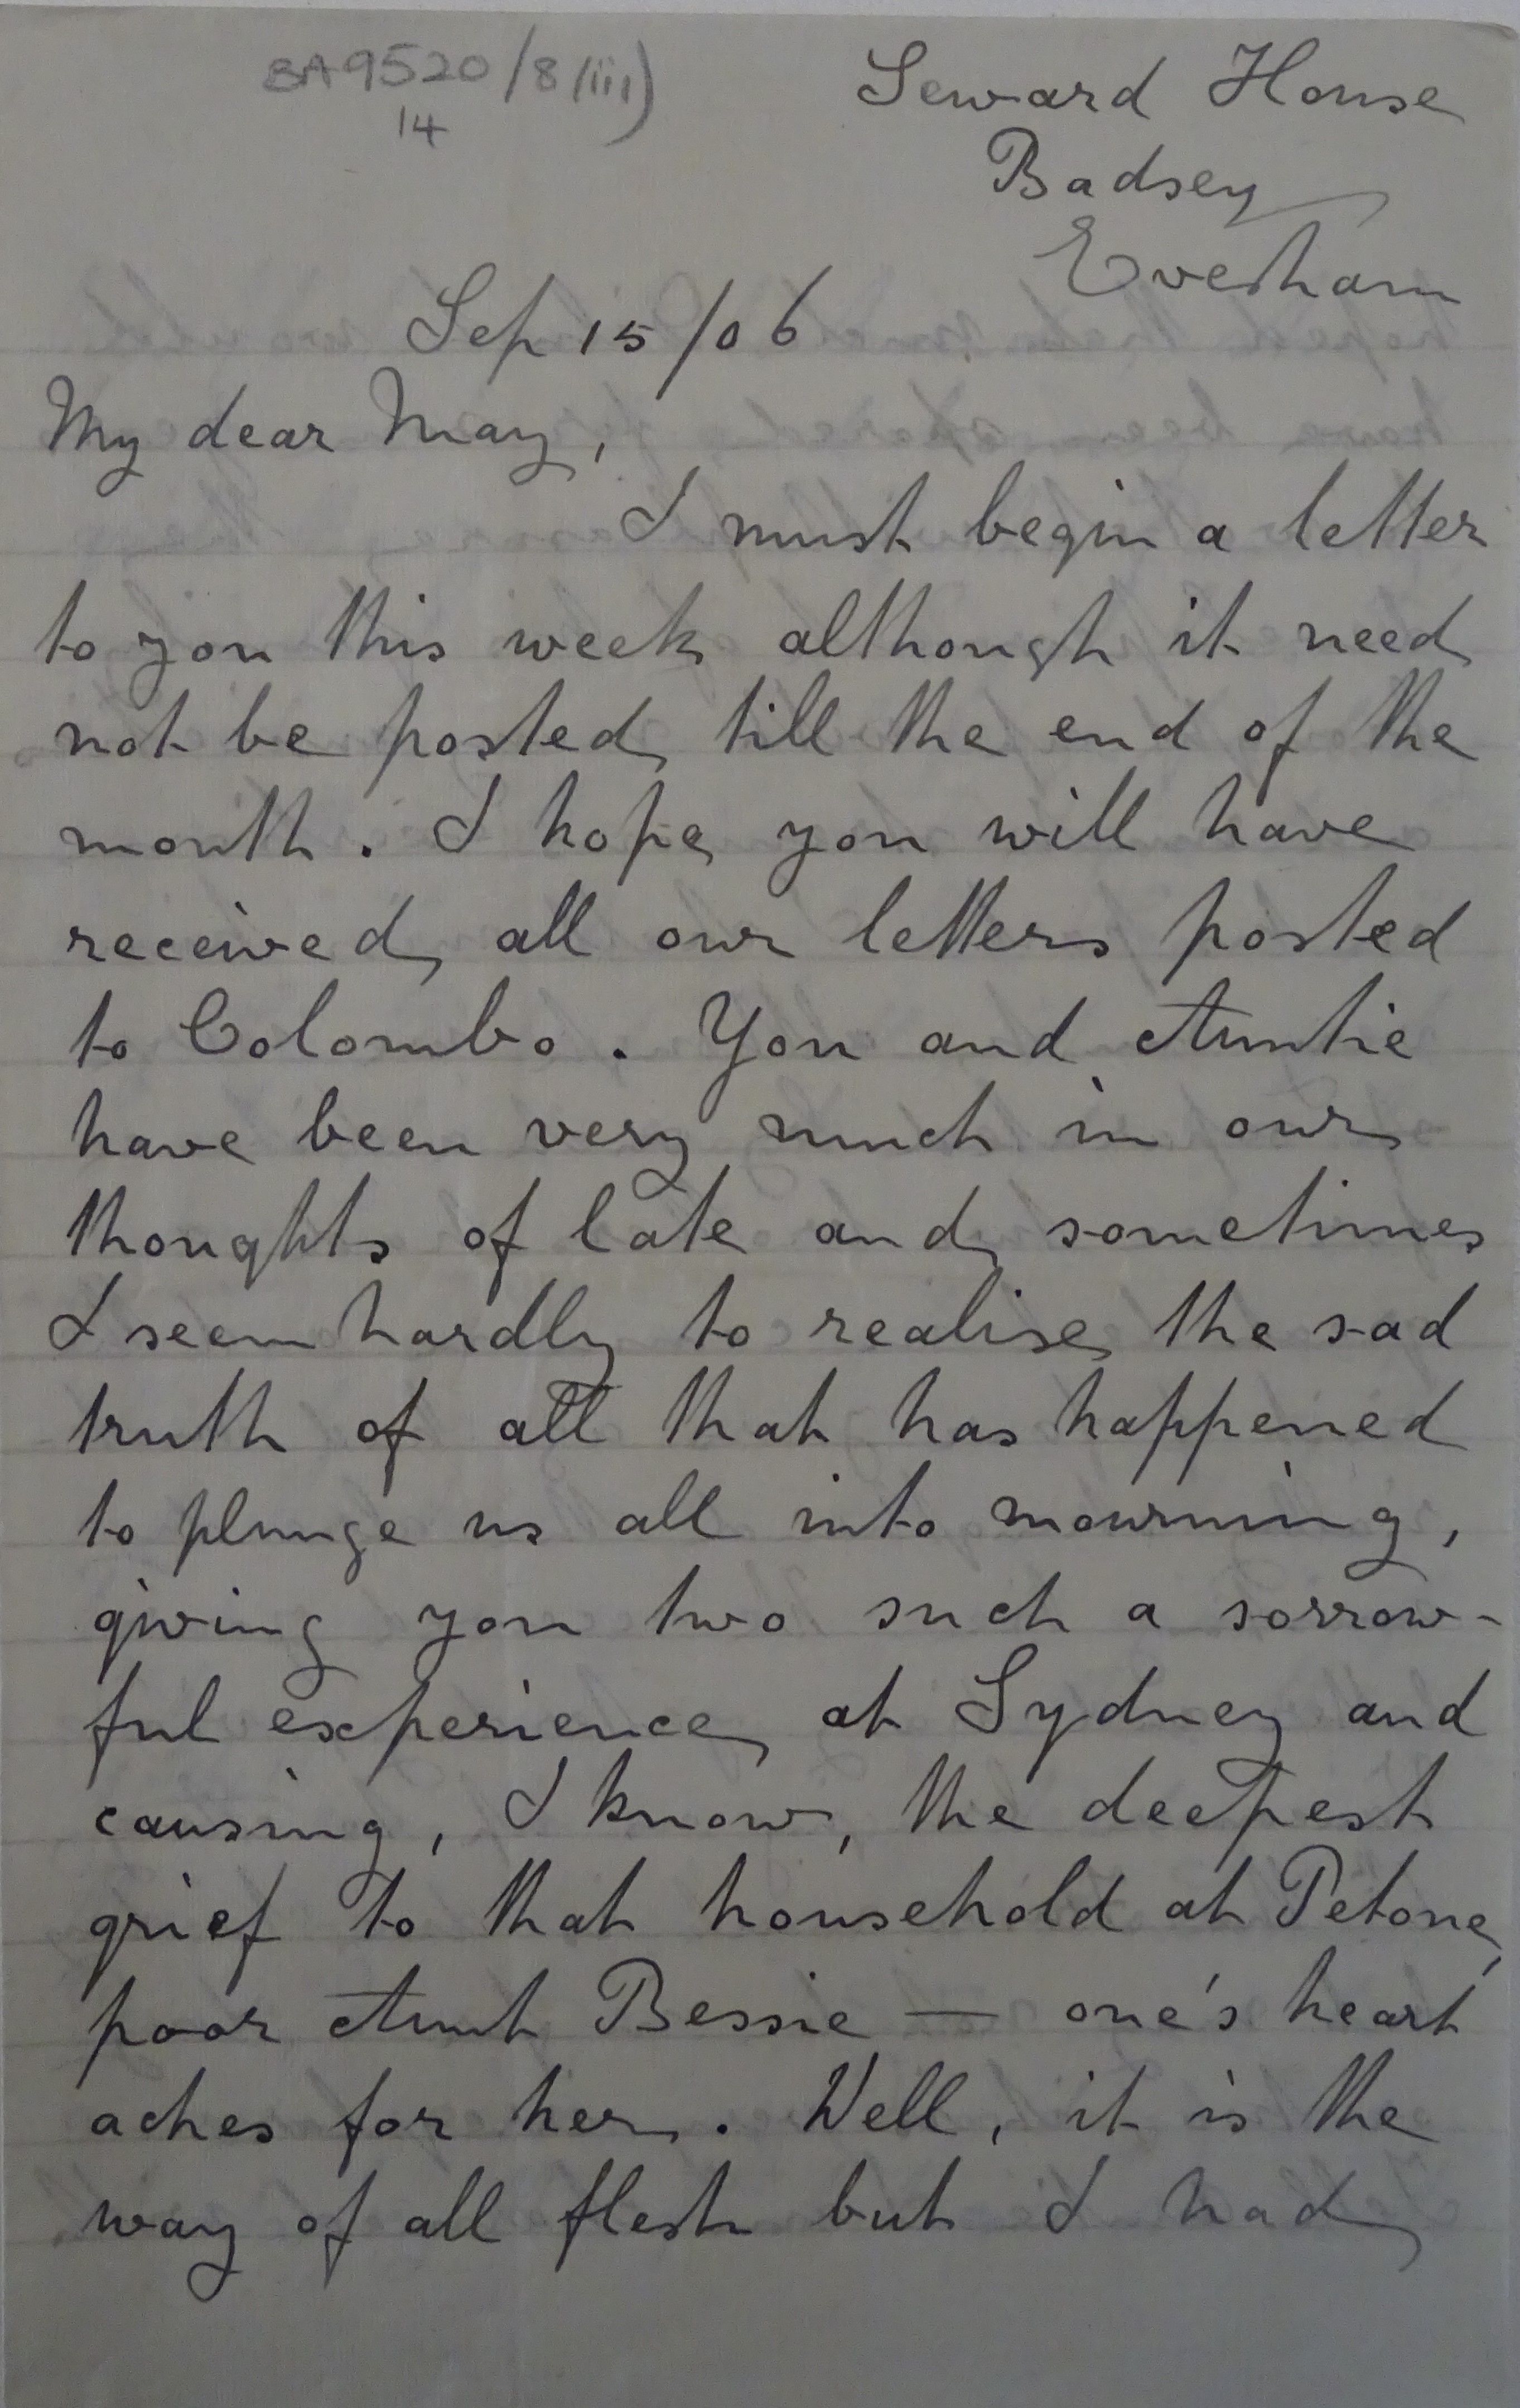 BA9520/8(iii)
14
Seward House
Badsey
Evesham
Sep 15/06
My dear May,
I must begin a letter
to you this week although it need
not be posted till the end of the
month. I hope you will have
received all our letters posted
to Colombo. You and Auntie
have been very much in our
thoughts of late and sometimes
I seem hardly to realise the sad
truth of all that has happened
to plunge us all into mourning,
giving you two such a sorrow-
ful experience at Sydney and
causing, I know, the deepest
grief to that household at Petone,
poor Aunt Bessie — one's heart
aches for her. Well, it is the
way of all flesh but I had